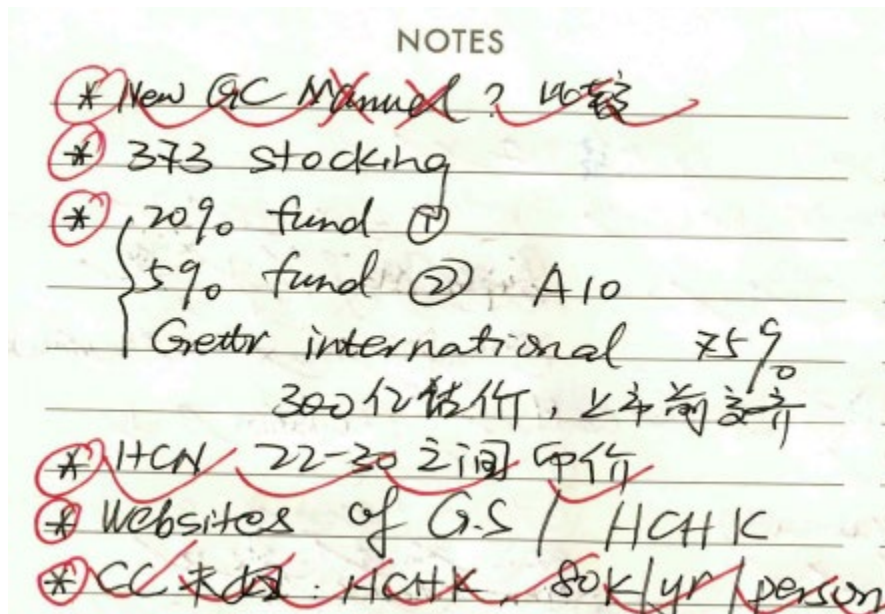 NOTES
* New GC Manual ?
* 373 stocking
* 20% fund ①
5% fund ② A10
Gettr international 75%
300亿估价，上市前文件
* HCN 22-30 之间 印价
* Websites of G.S / HCHK
* CC : HCHK, 80K/yr/person